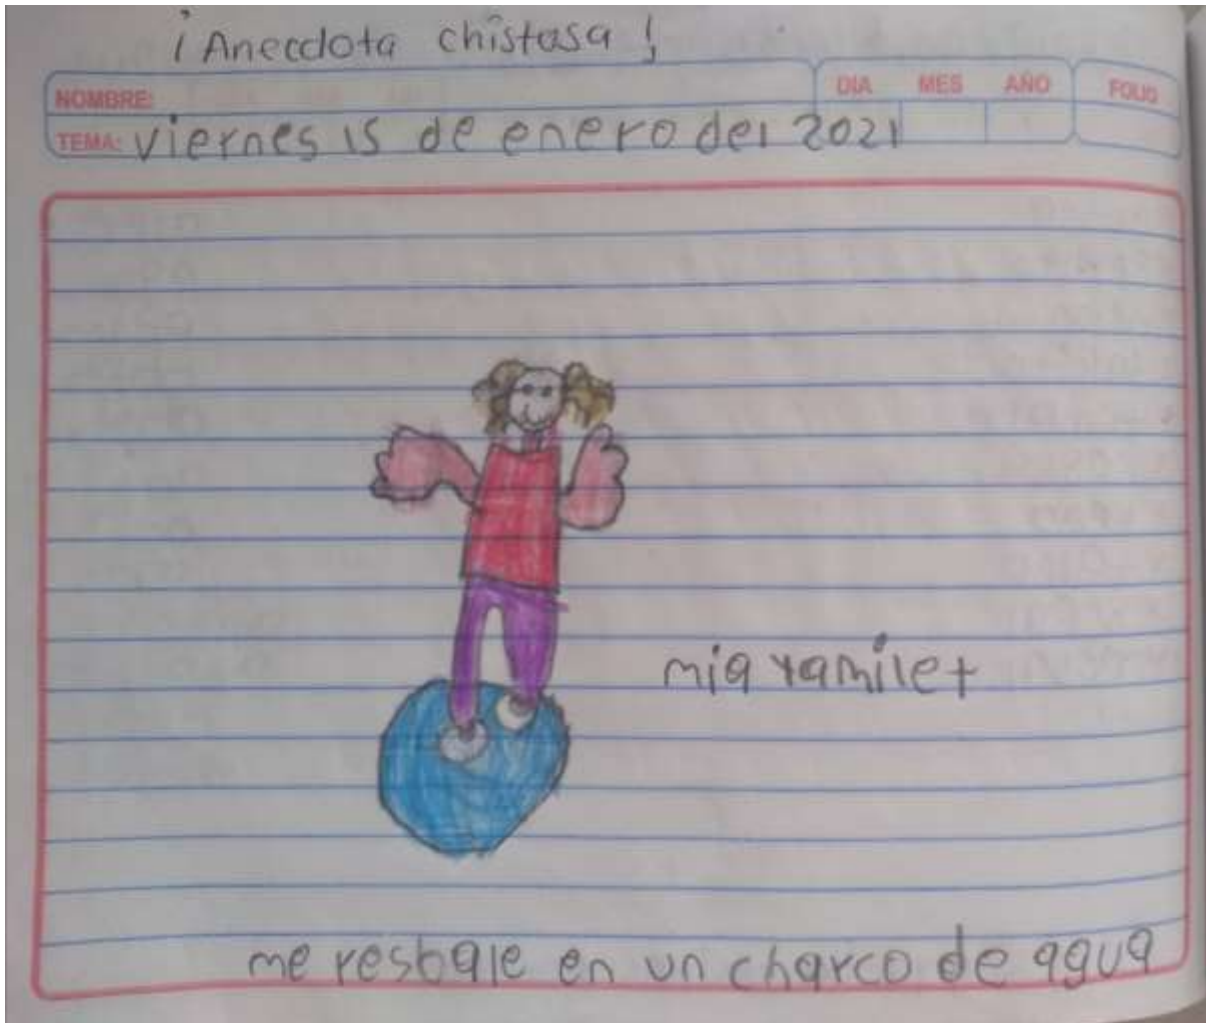 ¡Anecdota chistosa!
NOMBRE: DIA MES AÑO FOLIO
TEMA: viernes 15 de enero del 2021
mia yamilet
me resbale en un charco de agua